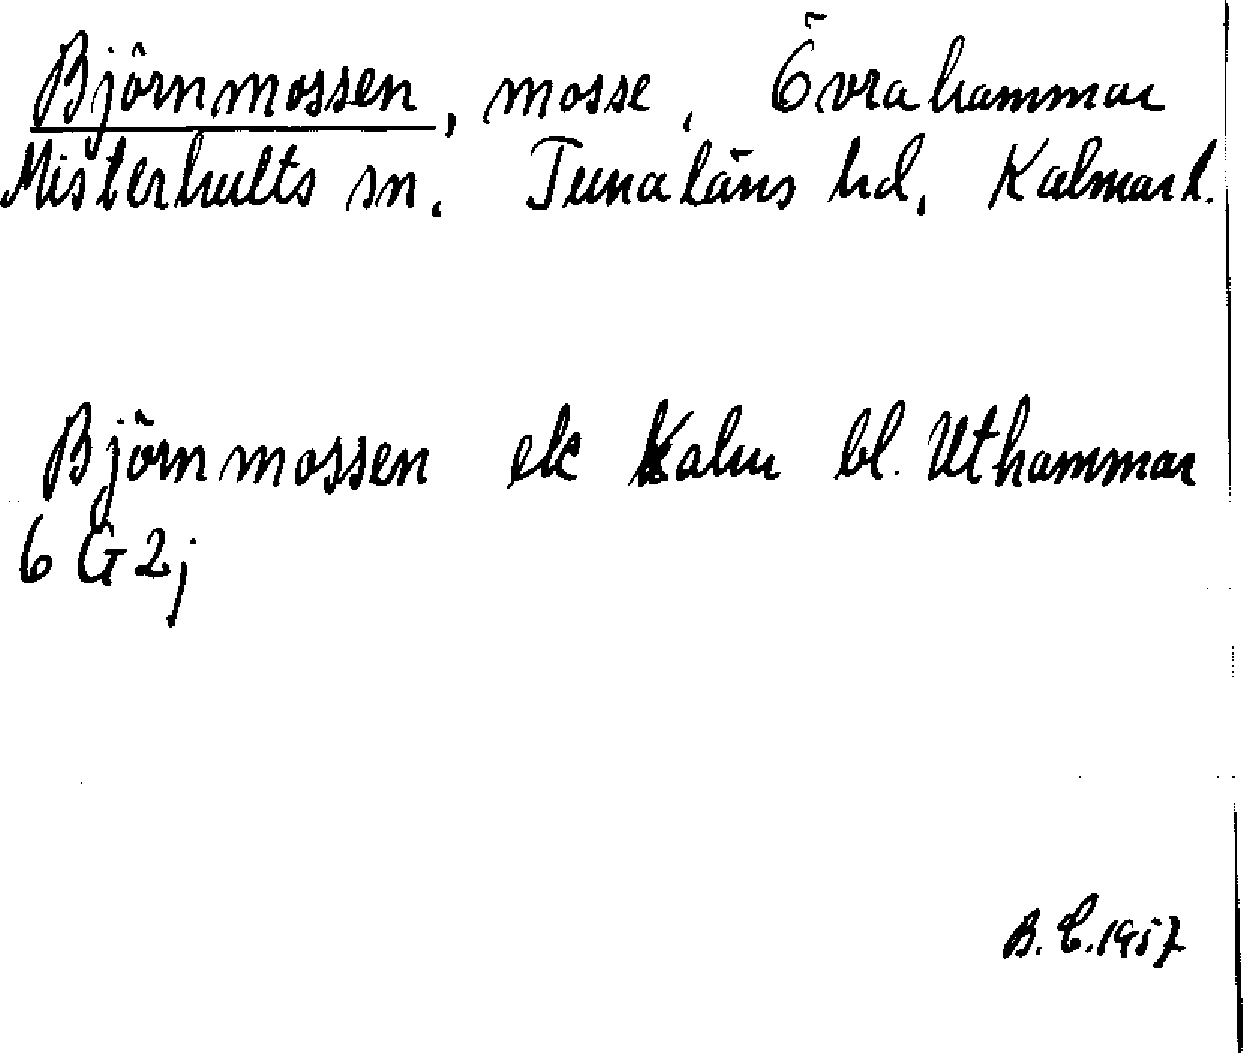 Björnmossen, mosse, Övrahammar
Misterhults sn. Tunaläns hd, Kalmar l.
Björnmossen ek Kalm bl. Uthammar
6 G 2 j
B. C. 1957